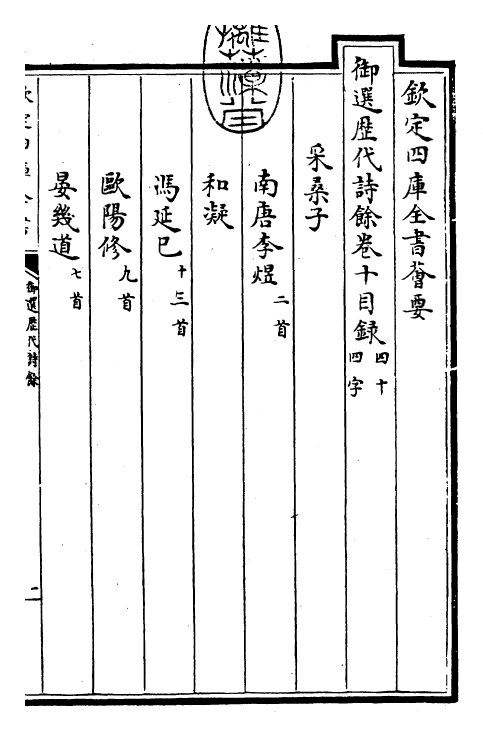 欽定四庫全書薈要
御選歷代詩餘卷十目録四十四字
采桑子
南唐李煜二首
和凝
馮延巳十三首
歐陽修九首
晏幾道七首
御選歷代詩餘